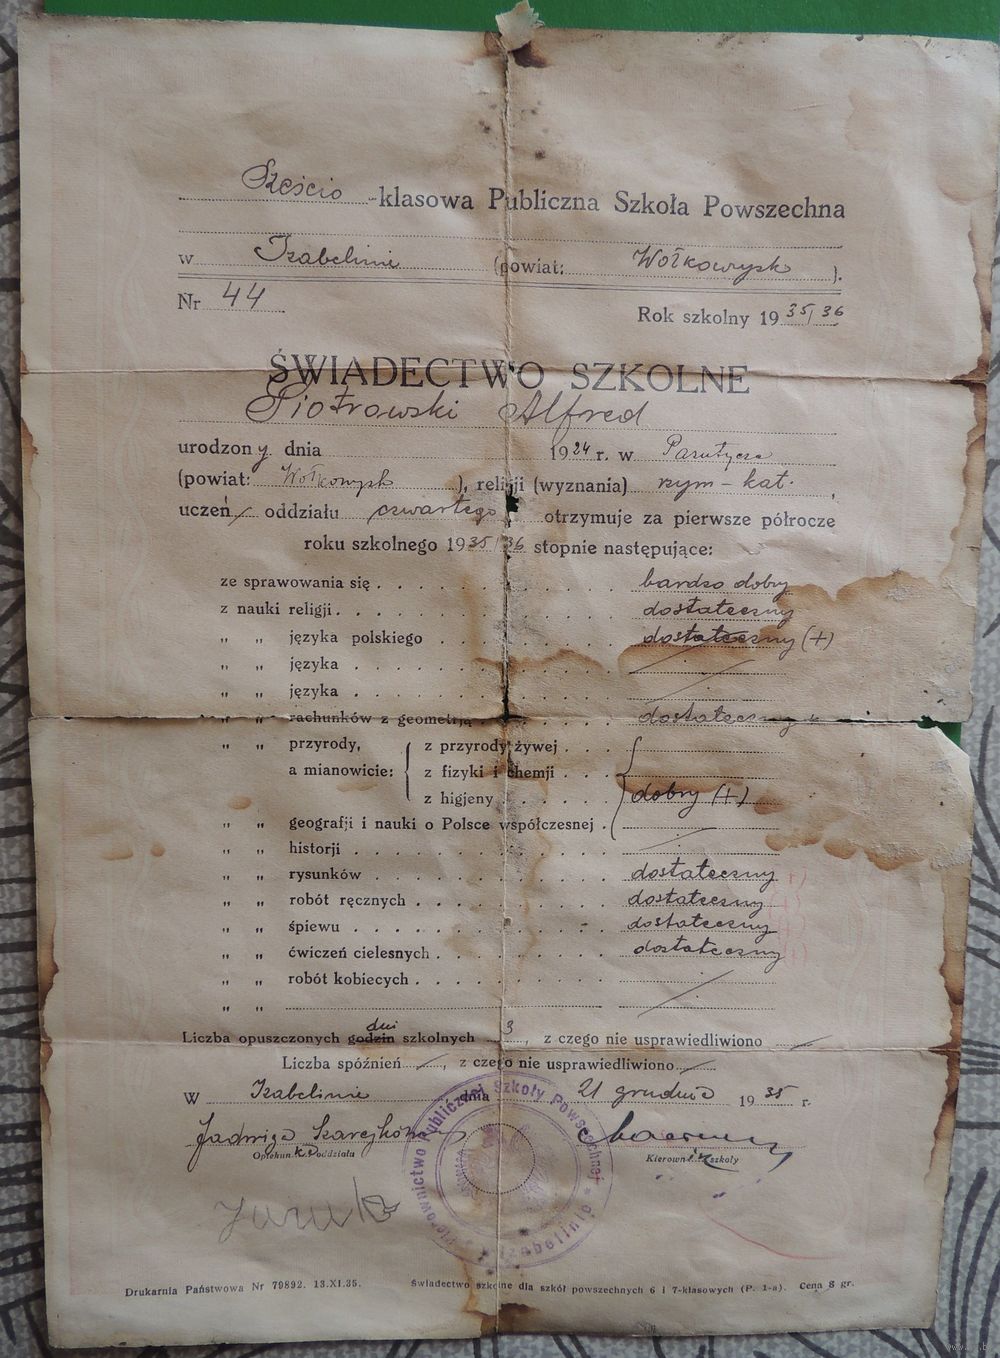 Sześcio -klasowa Publiczna Szkoła Powszechna
w Izabelinie (powiat: Wołkowysk ).
Nr 44
Rok szkolny 1935/36
ŚWIADECTWO SZKOLNE
Piotrowski Alfred
urodzony dnia 1924 r. w
(powiat: Wołkowysk ), religji (wyznania) rzym - kat. ,
uczeń/ oddziału czwartego otrzymuje za pierwsze półrocze
roku szkolnego 1935/36 stopnie następujące:
ze sprawowania się . . . bardzo dobry
z nauki religji . . . dostateczny
„ „ języka polskiego . . . dostateczny (+)
„ „ języka . . . /
„ „ języka . . . /
„ „ rachunków z geometrją . . . dostateczny
„ „ przyrody, z przyrody żywej . . .
a mianowicie: z fizyki i chemji . . .
z higjeny . . . dobry (+)
„ „ geografji i nauki o Polsce współczesnej .
„ „ historji . . . /
„ „ rysunków . . . dostateczny
„ „ robót ręcznych . . . dostateczny
„ „ śpiewu . . . dostateczny
„ „ ćwiczeń cielesnych . . . dostateczny
„ „ robót kobiecych . . . /
„ „ /
dni
Liczba opuszczonych godzin szkolnych 3, z czego nie usprawiedliwiono /
Liczba spóźnień /, z czego nie usprawiedliwiono /
W Izabelinie dnia 21 grudnia 1935 r.
Jadwiga
Opiekunka oddziału
Kierownik szkoły
Kierownictwo Publicznej Szkoły Powszechnej w Izabelinie
Drukarnia Państwowa Nr 79892. 13.XI.35.
Świadectwo szkolne dla szkół powszechnych 6 i 7-klasowych (P. 1-a). Cena 8 gr.